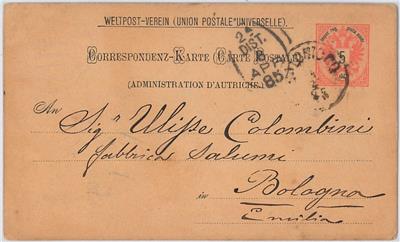 WELTPOST-VEREIN (UNION POSTALE UNIVERSELLE).
CORRESPONDENZ-KARTE (CARTE POSTALE)
(ADMINISTRATION D'AUTRICHE).
5
85
An
Sigr Ulisse Colombini
fabbrica Salumi
in Bologna
Emilia